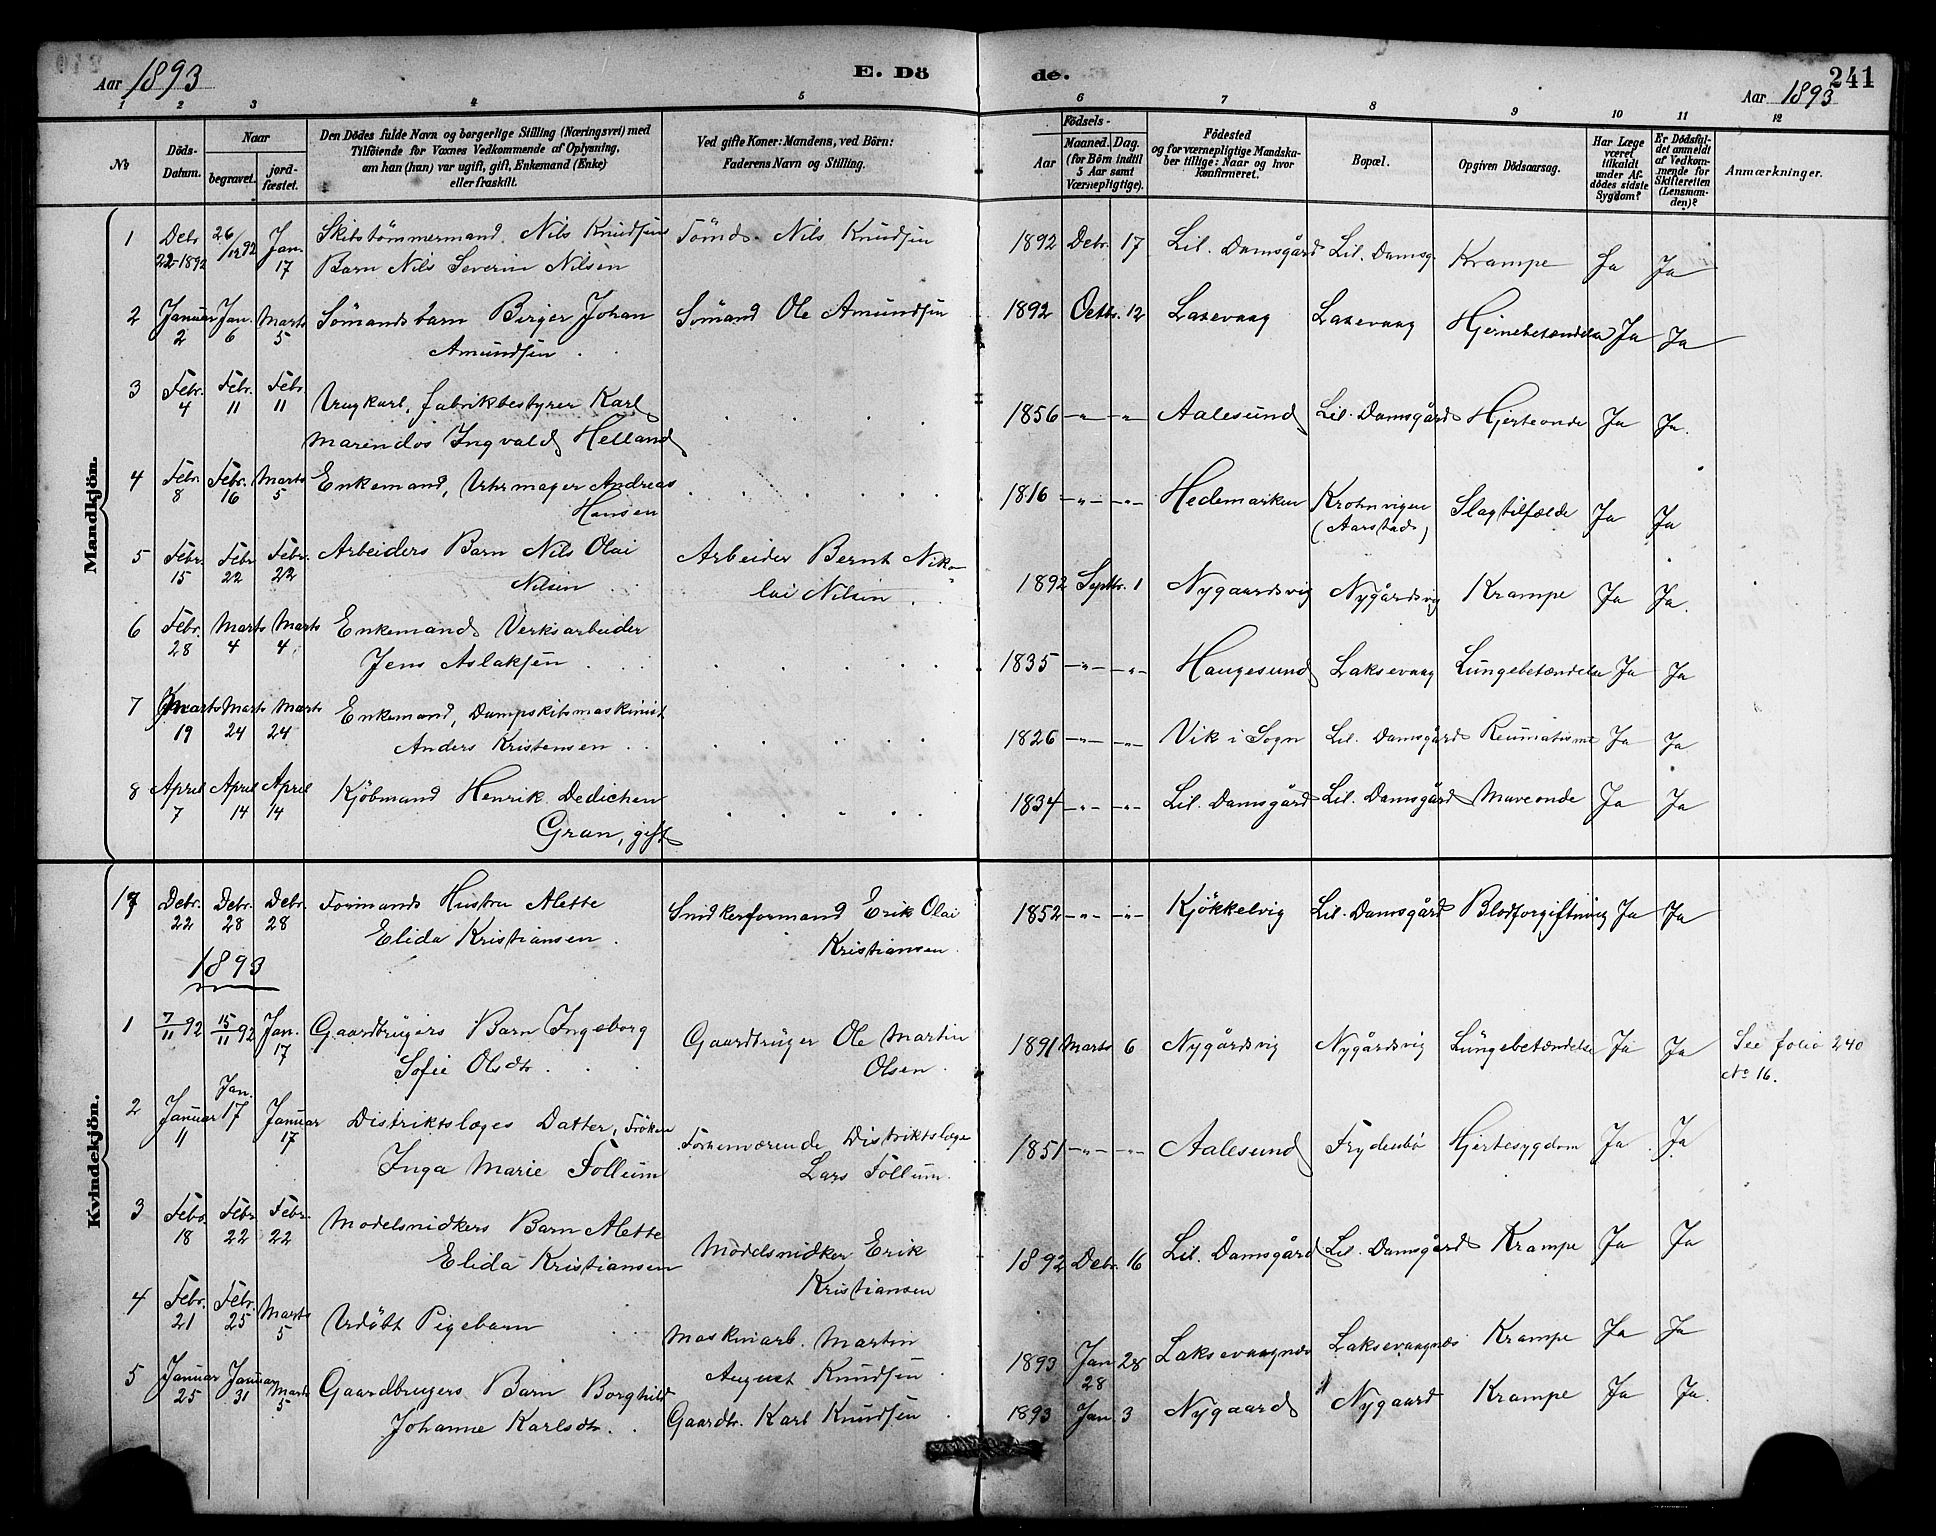 Aar 1893
E. Dö
de.
241
Aar 1893
1 2 3 4 5 6 7 8 9 10 11 12
No
Döds-Datum.
Naar
begravet.
jord-fæstet.
Den Dödes fulde Navn og borgerlige Stilling (Næringsvei) med
Tilföiende for Voxnes Vedkommende af Oplysning,
om han (hun) var ugift, gift, Enkemand (Enke)
eller fraskilt.
Ved gifte Koner: Mandens, ved Börn:
Faderens Navn og Stilling.
Födsels-
Aar
Maaned. Dag.
(for Börn indtil
5 Aar samt
Værnepligtige).
Födested
og for værnepligtige Mandska-
ber tillige: Naar og hvor
konfirmeret.
Bopæl.
Opgiven Dödsaarsag.
Har Læge
været
tilkaldt
under Af-
dödes sidste
Sygdom?
Er Dödsfal-
det anmeldt
af Vedkom-
mende for
Skifteretten
(Lensman-
den)?
Anmærkninger.
Mandkjön.
1 Debr 22-1892 26/12 92 Jan. 17 Skibstömmermand Nils Knudsens Tömds. Nils Knudsen 1892 Debr. 17 Lil. Damsgård Lil. Damsg. Krampe Ja Ja
Barn Nils Severin Nilsen
2 Januar 2 Jan. 6 Marts 5 Sömandsbarn Birger Johan Sömand Ole Amundsen 1892 Octbr. 12 Laxevaag Laxevaag Hjernebetændelse Ja Ja
Amundsen
3 Febr. 4 Febr. 11 Febr. 11 Ungkarl, fabrikbestyrer Karl 1856 -"- -"- Aalesund Lil. Damsgård Hjerteonde Ja Ja.
Ingvald Helland
4 Febr. 8 Febr. 16 Marts 5 Enkemand, Uhrmager Andreas 1816 -"- -"- Hedemarken Krohnvigen Slagtilfælde Ja Ja
Hansen (Aarstad)
5 Febr. 15 Febr 22 Febr. 22 Arbeiders Barn Nils Olai Arbeider Bernt Niko- 1892 Septbr. 1 Nygaardsvig Nygårdsvig Krampe Ja Ja.
Nilsen lai Nilsen
6 Febr. 28 Marts 4 Marts 4 Enkemand Verksarbeider 1835 -"- -"- Haugesund Laksevaag Lungebetændelse Ja Ja
Jens Aslaksen
7 Marts 19 Marts 24 Marts 24 Enkemand, Dampskibsmaskinist 1826 -"- -"- Vik i Sogn Lil. Damsgård Reumatisme Ja Ja
Anders Kristensen
8 April 7 April 14 April 14 Kjöbmand Henrik Dedichen 1834 -"- -"- Lil. Damsgård Lil. Damsgård Maveonde Ja Ja
Gran, gift
Kvindekjön.
17 Debr. 22 Debr. 28 Debr. 28 Formands Hustru Alette Snidkerformand Erik Olai 1852 -"- -"- Kjökkelvig Lil. Damsgård Blodforgiftning Ja Ja
Elida Kristiansen. Kristiansen.
1893
1 7/11 92 15/11 92 Jan. 17 Gaardbrugers Barn Ingeborg Gaardbruger Ole Martin 1891 Marts 6 Nygårdsvig Nygårdsvig Lungebetændelse Ja Ja See folio 240
Sofie Olsdtr. Olsen. No 16.
2 Januar 11 Jan. 17 Januar 17 Distriktslæges Datter, Fröken Forhenværende Distriktslæge 1851 -"- -"- Aalesund Frydenbö Hjertesygdom Ja Ja
Inga Marie Follum Lars Follum.
3 Febr. 18 Febr 22 Febr. 22 Modelsnidkers Barn Alette Modelsnidker Erik 1892 Debr. 16 Lil. Damsgård Lil. Damsgård Krampe Ja Ja
Elida Kristiansen Kristiansen
4 Febr. 21 Febr. 25 Marts 5 Udöbt Pigebarn Maskinarb. Martin 1893 Jan 28 28 Laksevaagnæs Laksevaagnæs Krampe Ja Ja
August Knudsen
5 Januar 25 Januar 31 Marts 5 Gaardbrugers Barn Borghild Gaardbr. Karl Knudsen 1893 Jan. 3 Nygaard Nygaard Krampe Ja Ja.
Johanne Karlsdtr.